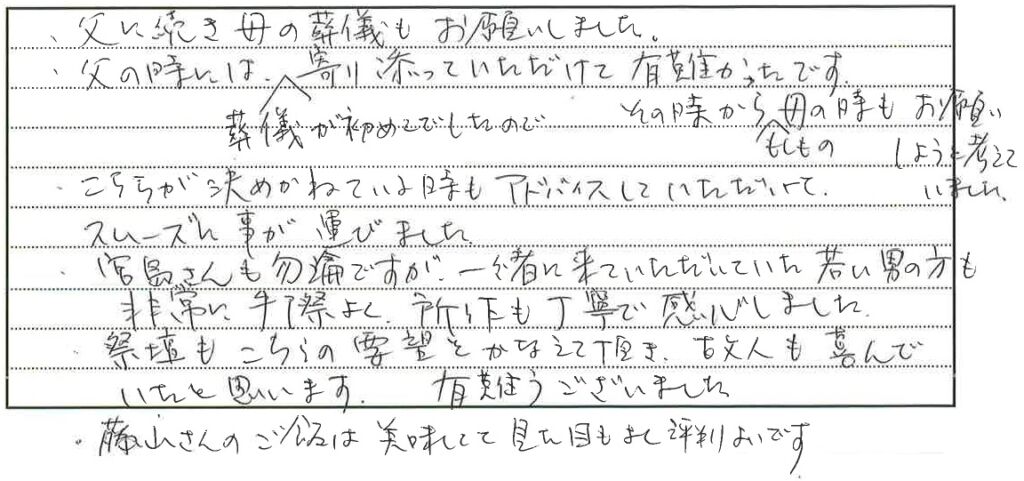 ・父に続き母の葬儀もお願いしました。
・父の時には、寄り添っていただけて有難かったです。
葬儀が初めてでしたので
その時から母の時もお願い
もしもの
しようと考えて
いました。
・こちらが決めかねている時もアドバイスしていただいて、
スムーズに事が運びました。
・宮島さんも勿論ですが、一緒に来ていただいていた若い男の方も
非常に手際よく、所作も丁寧で感心しました。
祭壇もこちらの要望をかなえて頂き、故人も喜んで
いたと思います。 有難うございました
・藤山さんのご飯は美味しくて見た目もよし評判よいです